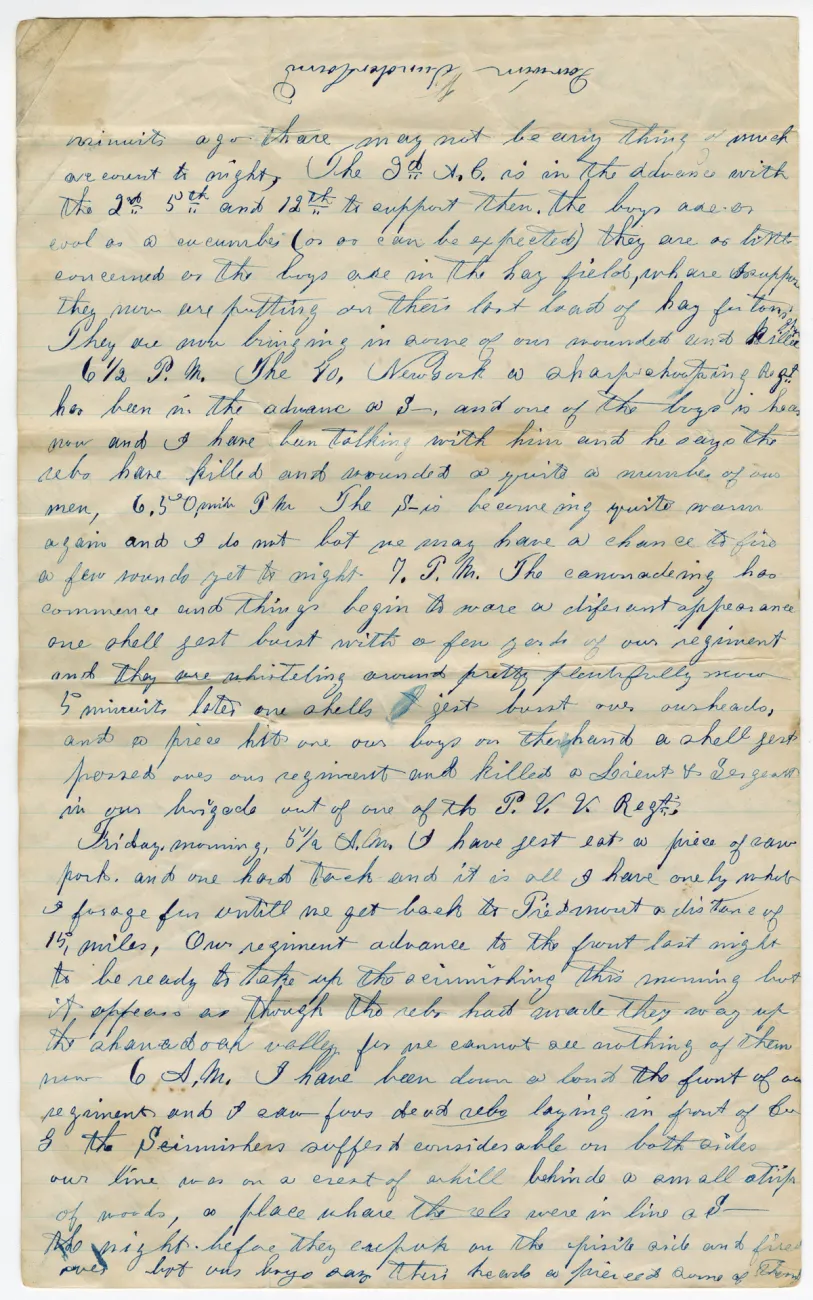 minuits ago thare may not be any thing of much
account to night, The 3rd A.C. is in the advance with
the 2nd 5th and 12th to support then. the boys are as
cool as a cucumber (or as can be expected) they are as little
concerned as the boys are in the hay field, whare I suppose
they now are putting on their last load of hay for to
They are now bringing in some of our wounded and killed
6 1/2 P.M. The 40. NewYork a sharpshooting Regt
has been in the advance a S—, and one of the boys is hear
now and I have ben talking with him and he says the
rebs have killed and wounded a quite a number of our
men, 6.50, min P M The S— is becomeing quite warm
again and I do not but we may have a chance to fire
a few rounds yet to night 7. P.M. The cannonadeing has
commence and things begin to ware a diferant appearance
one shell jest burst with a few yards of our regiment
and they are whisteling around pretty plentifully now
5 minuits later one shells jest burst over our heads,
and a piece hit one our boys on the hand a shell jest
passed over our regiment and killed a Lieut & Sergeant
in our brigade out of one of the P. V. V. Regt.
Friday. morning, 5 1/2 A.M. I have jest eat a piece of raw
pork. and one hard tack and it is all I have onely what
I forage for untill we get back to Piedmont a distance of
15, miles, Our regiment advance to the front last night
to be ready to take up the scirmishing this morning but
it appears as though the rebs had made they way up
the shanadoah valley for we cannot see nothing of them
now 6 A.M. I have been down a lond the front of our
regiment and I saw four dead rebs laying in front of Co
G the Scirmishers sufferd considerable on both sides
our line was on a crest of ahill behinde a small strip
of woods, a place whare the rebs were in line a S—
the night before they on the side and fired
over but our boys saw their heads a pierced some of them
Darwin